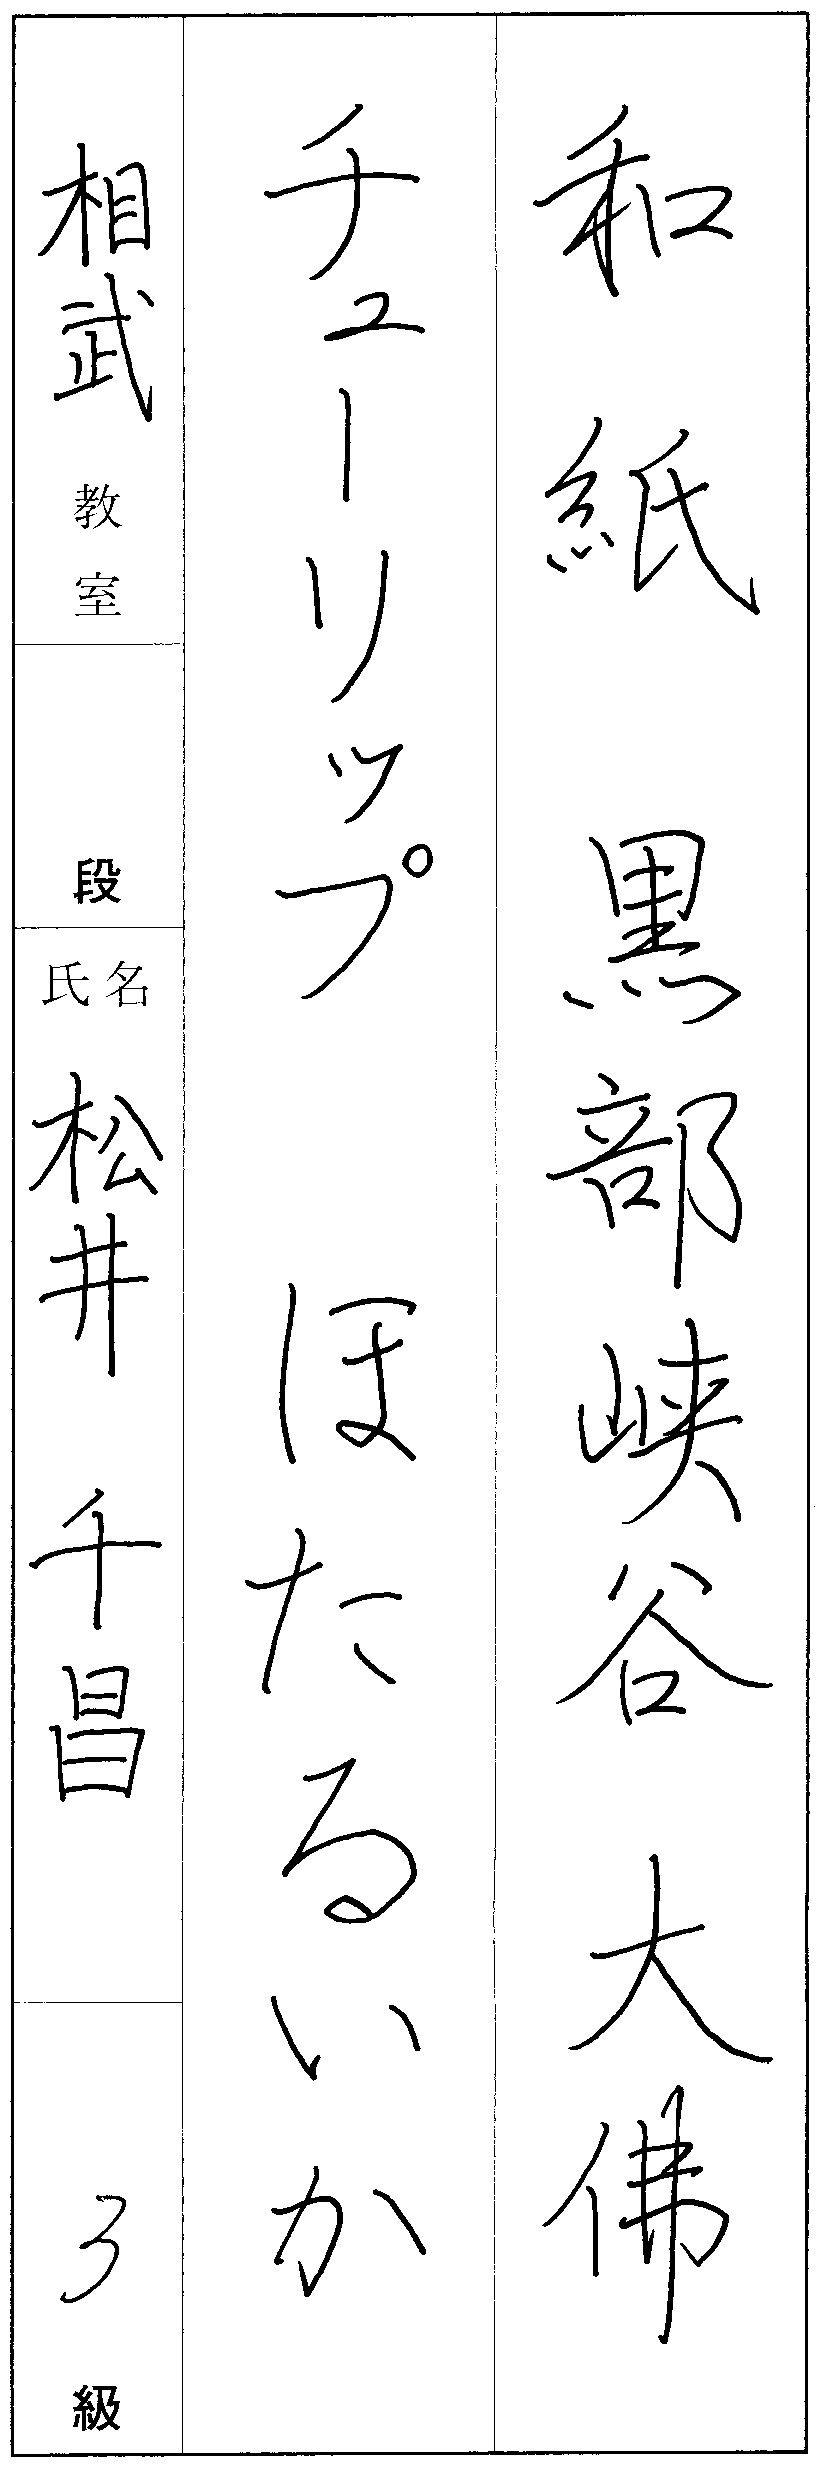 和紙 黒部峡谷 大佛
チューリップ ほたるいか
相武教室
段
氏名 松井千昌
3級